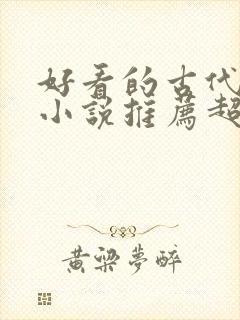 好看的古代
小说推薦超
黄梁夢醉